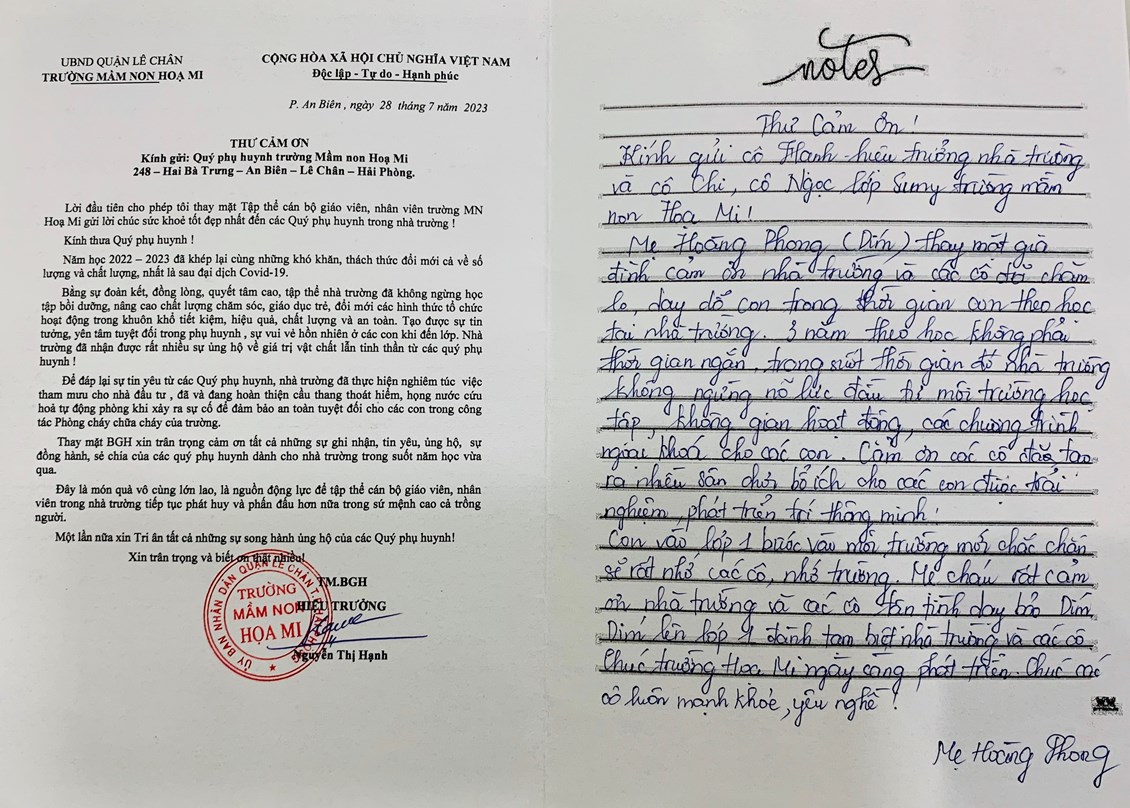 UBND QUẬN LÊ CHÂN
TRƯỜNG MẦM NON HOẠ MI
CỘNG HÒA XÃ HỘI CHỦ NGHĨA VIỆT NAM
Độc lập - Tự do - Hạnh phúc
P. An Biên , ngày 28 tháng 7 năm 2023
THƯ CẢM ƠN
Kính gửi: Quý phụ huynh trường Mầm non Hoạ Mi
248 – Hai Bà Trưng – An Biên – Lê Chân – Hải Phòng.
Lời đầu tiên cho phép tôi thay mặt Tập thể cán bộ giáo viên, nhân viên trường MN
Hoạ Mi gửi lời chúc sức khoẻ tốt đẹp nhất đến các Quý phụ huynh trong nhà trường !
Kính thưa Quý phụ huynh !
Năm học 2022 – 2023 đã khép lại cùng những khó khăn, thách thức đổi mới cả về số
lượng và chất lượng, nhất là sau đại dịch Covid-19.
Bằng sự đoàn kết, đồng lòng, quyết tâm cao, tập thể nhà trường đã không ngừng học
tập bồi dưỡng, nâng cao chất lượng chăm sóc, giáo dục trẻ, đổi mới các hình thức tổ chức
hoạt động trong khuôn khổ tiết kiệm, hiệu quả, chất lượng và an toàn. Tạo được sự tin
tưởng, yên tâm tuyệt đối trong phụ huynh , sự vui vẻ hồn nhiên ở các con khi đến lớp. Nhà
trường đã nhận được rất nhiều sự ủng hộ về giá trị vật chất lẫn tinh thần từ các quý phụ
huynh !
Để đáp lại sự tin yêu từ các Quý phụ huynh, nhà trường đã thực hiện nghiêm túc việc
tham mưu cho nhà đầu tư , đã và đang hoàn thiện cầu thang thoát hiểm, họng nước cứu
hoả tự động phòng khi xảy ra sự cố để đảm bảo an toàn tuyệt đối cho các con trong công
tác Phòng cháy chữa cháy của trường.
Thay mặt BGH xin trân trọng cảm ơn tất cả những sự ghi nhận, tin yêu, ủng hộ, sự
đồng hành, sẻ chia của các quý phụ huynh dành cho nhà trường trong suốt năm học vừa
qua.
Đây là món quà vô cùng lớn lao, là nguồn động lực để tập thể cán bộ giáo viên, nhân
viên trong nhà trường tiếp tục phát huy và phấn đấu hơn nữa trong sứ mệnh cao cả trồng
người.
Một lần nữa xin Tri ân tất cả những sự song hành ủng hộ của các Quý phụ huynh!
Xin trân trọng và biết ơn thật nhiều!
TM.BGH
HIỆU TRƯỞNG
ỦY BAN NHÂN DÂN QUẬN LÊ CHÂN
TRƯỜNG
MẦM NON
HỌA MI
Nguyễn Thị Hạnh
notes
Thư Cảm Ơn !
Kính gửi cô Hạnh - hiệu trưởng nhà trường
và cô Chi, cô Ngọc lớp Sumy trường mầm
non Họa Mi !
Mẹ Hoàng Phong (Dím) thay mặt gia
đình cảm ơn nhà trường và các cô đã chăm
lo, dạy dỗ con trong thời gian con theo học
tại nhà trường. 3 năm theo học không phải
thời gian ngắn, trong suốt thời gian đó nhà trường
không ngừng nỗ lực đầu tư môi trường học
tập, không gian hoạt động, các chương trình
ngoại khoá cho các con. Cảm ơn các cô đã tạo
ra nhiều sân chơi bổ ích cho các con được trải
nghiệm, phát triển trí thông minh!
Con vào lớp 1 bước vào môi trường mới chắc chắn
sẽ rất nhớ các cô, nhớ trường. Mẹ cháu rất cảm
ơn nhà trường và các cô tận tình dạy bảo Dím.
Dím lên lớp 1 đành tạm biệt nhà trường và các cô
Chúc trường Họa Mi ngày càng phát triển. Chúc các
cô luôn mạnh khỏe, yêu nghề !
Mẹ Hoàng Phong